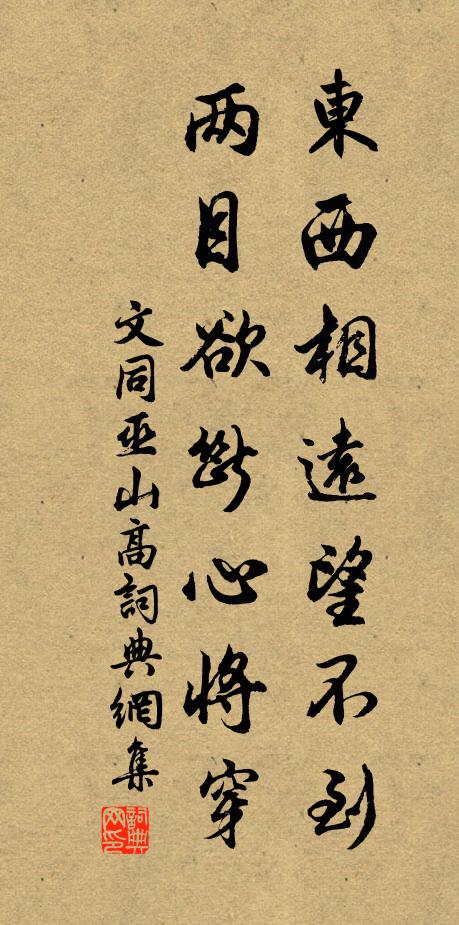 東西相遠望不到
两目欲斷心將穿
文同巫山高詞典網集
詞典
网印